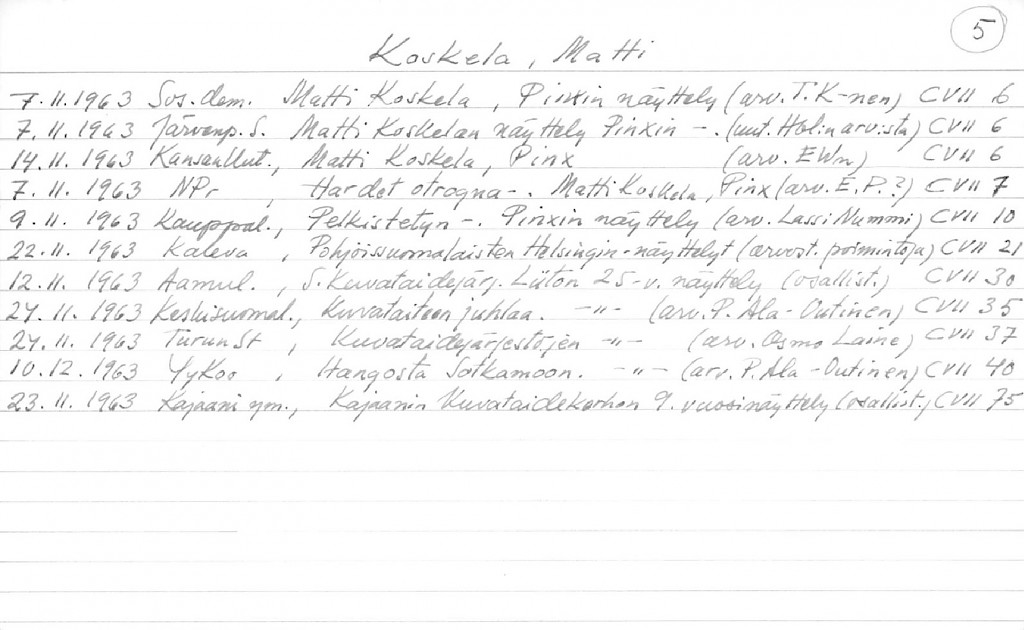 5
Koskela, Matti
7.11.1963 Sos.dem. Matti Koskela, Pinxin näyttely (arv. T.K-nen) CVII 6
7.11.1963 Järvenp.S. Matti Koskelan näyttely Pinxin -. (uut. Hol:n arv:sta) CVII 6
14.11.1963 Kansanuut., Matti Koskela, Pinx (arv. EWn) CVII 6
7.11.1963 NPr, Hardet otrogna-. Matti Koskela, Pinx (arv. E.P.?) CVII 7
9.11.1963 Kauppal., Pelkistetyn -. Pinxin näyttely (arv. Lassi Nummi) CVII 10
22.11.1963 Kaleva, Pohjoissuomalaisten Helsingin-näyttelyt (arvost. poimintoja) CVII 21
12.11.1963 Aamul., S.Kuvataidejärj. Liiton 25-v. näyttely (osallist.) CVII 30
27.11.1963 Keskisuomal., Kuvataiteen juhlaa. -"- (arv. P. Ala-Outinen) CVII 35
24.11.1963 TurunSt, Kuvataidejärjestöjen -"- (arv. Osmo Laine) CVII 37
10.12.1963 YyKoo, Hangosta Sotkamoon. -"- (arv. P. Ala-Outinen) CVII 40
23.11.1963 Kajaani ym., Kajaanin Kuvataidekerhon 9. vuosinäyttely (osallist.) CVII 75